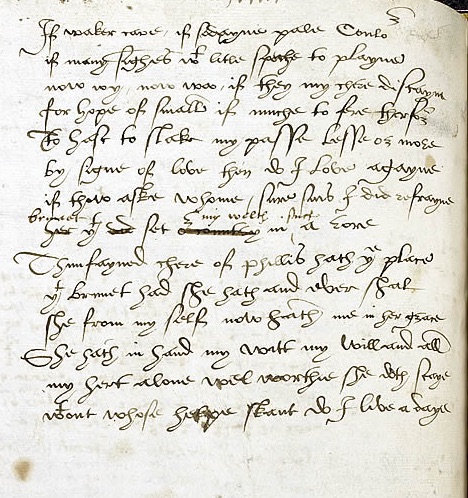 If waker care, if sodayne pale Coulor
if many sighes wt litle speche to playne
now ioy, now woo, if they my chere distayne
for hope of small, if muche to fere therfor
To hast to slake my passe lesse or more
by signe of love then do I love agayne
if thow aske whome, sure sins I did refrayne
brunet my welth such
her yt did set in a rore
Thunfayned chere of phillis hath ye place
yt brunet had she hath and ever shal
she from my self now hath me in her grace
She hath in hand my witt my will and all
my hert alone wel worthie she doth staye
wtout whose helpe skant do I live a daye